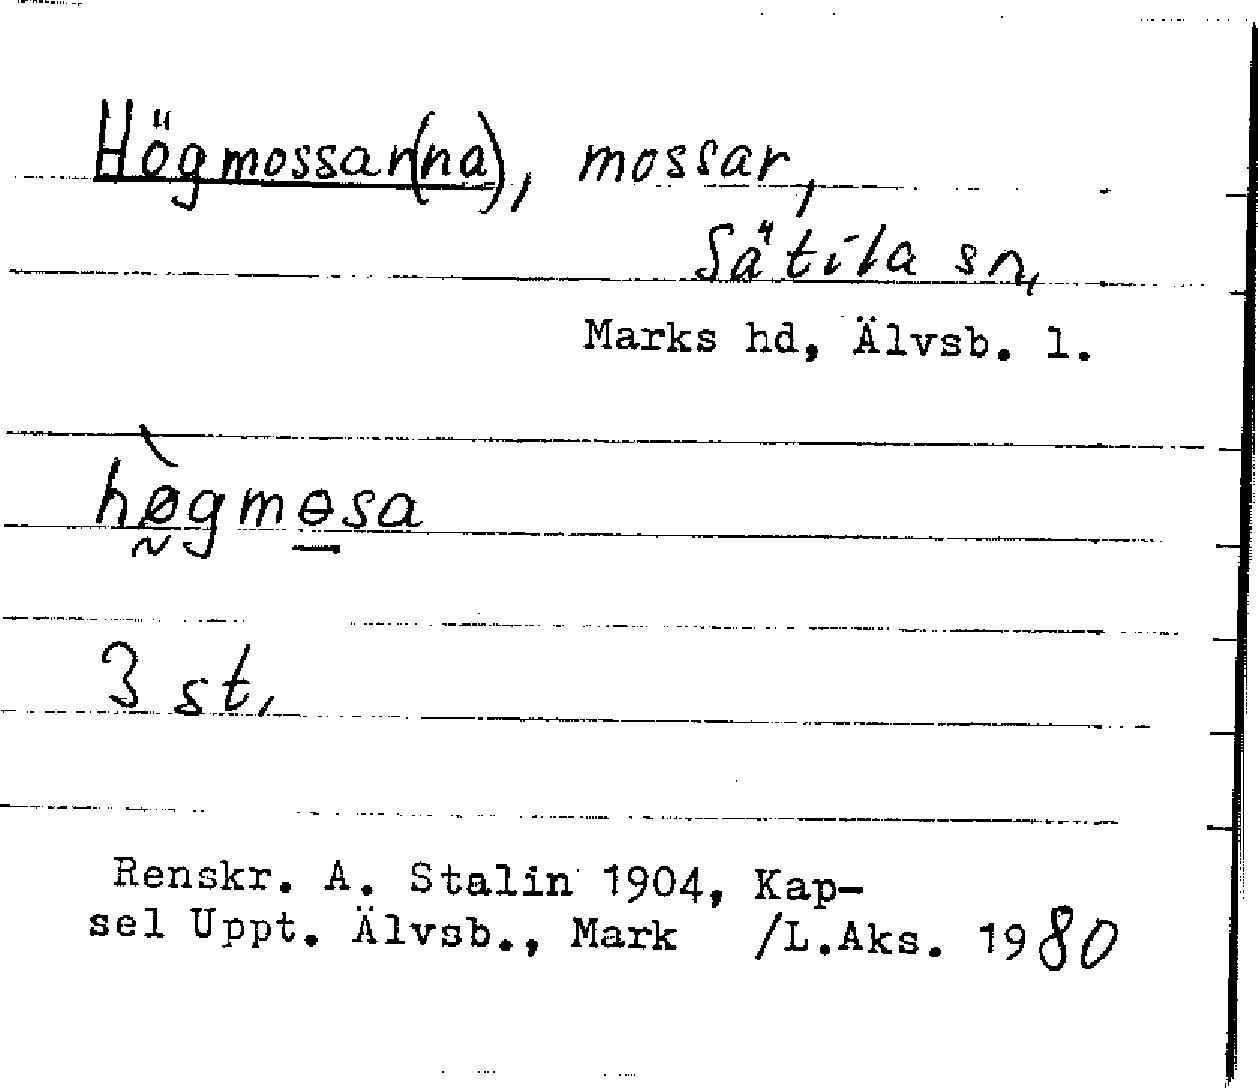 Högmossar(na), mossar,
Sätila sn,
Marks hd, Älvsb. l.
hø̰̀gmɵ̱sa
3 st,
Renskr. A. Stalin 1904, Kap-
sel Uppt. Älvsb., Mark /L.Aks. 1980